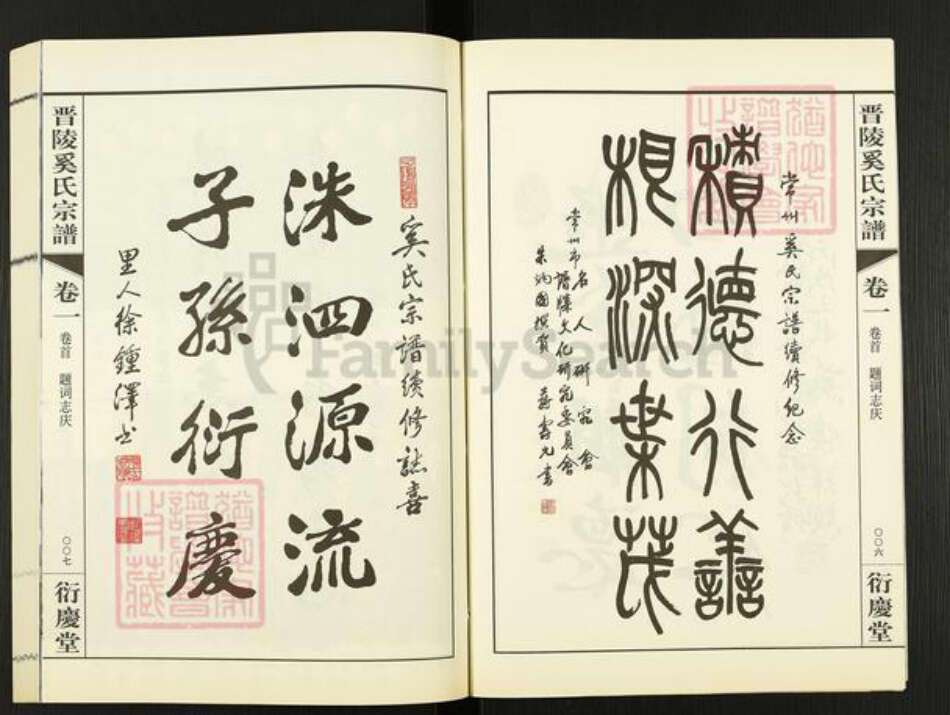 晋陵奚氏宗譜
卷一
卷首 題词志庆
〇〇六
衍慶堂
常州奚氏宗譜續修紀念
積德行善
根深葉茂
常州市名人研究會
譜牒文化研究委員會
朱炳國撰賀 蔣壽元書
奚氏宗譜續修誌喜
洙泗源流
子孫衍慶
里人徐鍾澤书
晋陵奚氏宗譜
卷一
卷首 題词志庆
〇〇七
衍慶堂
FamilySearch